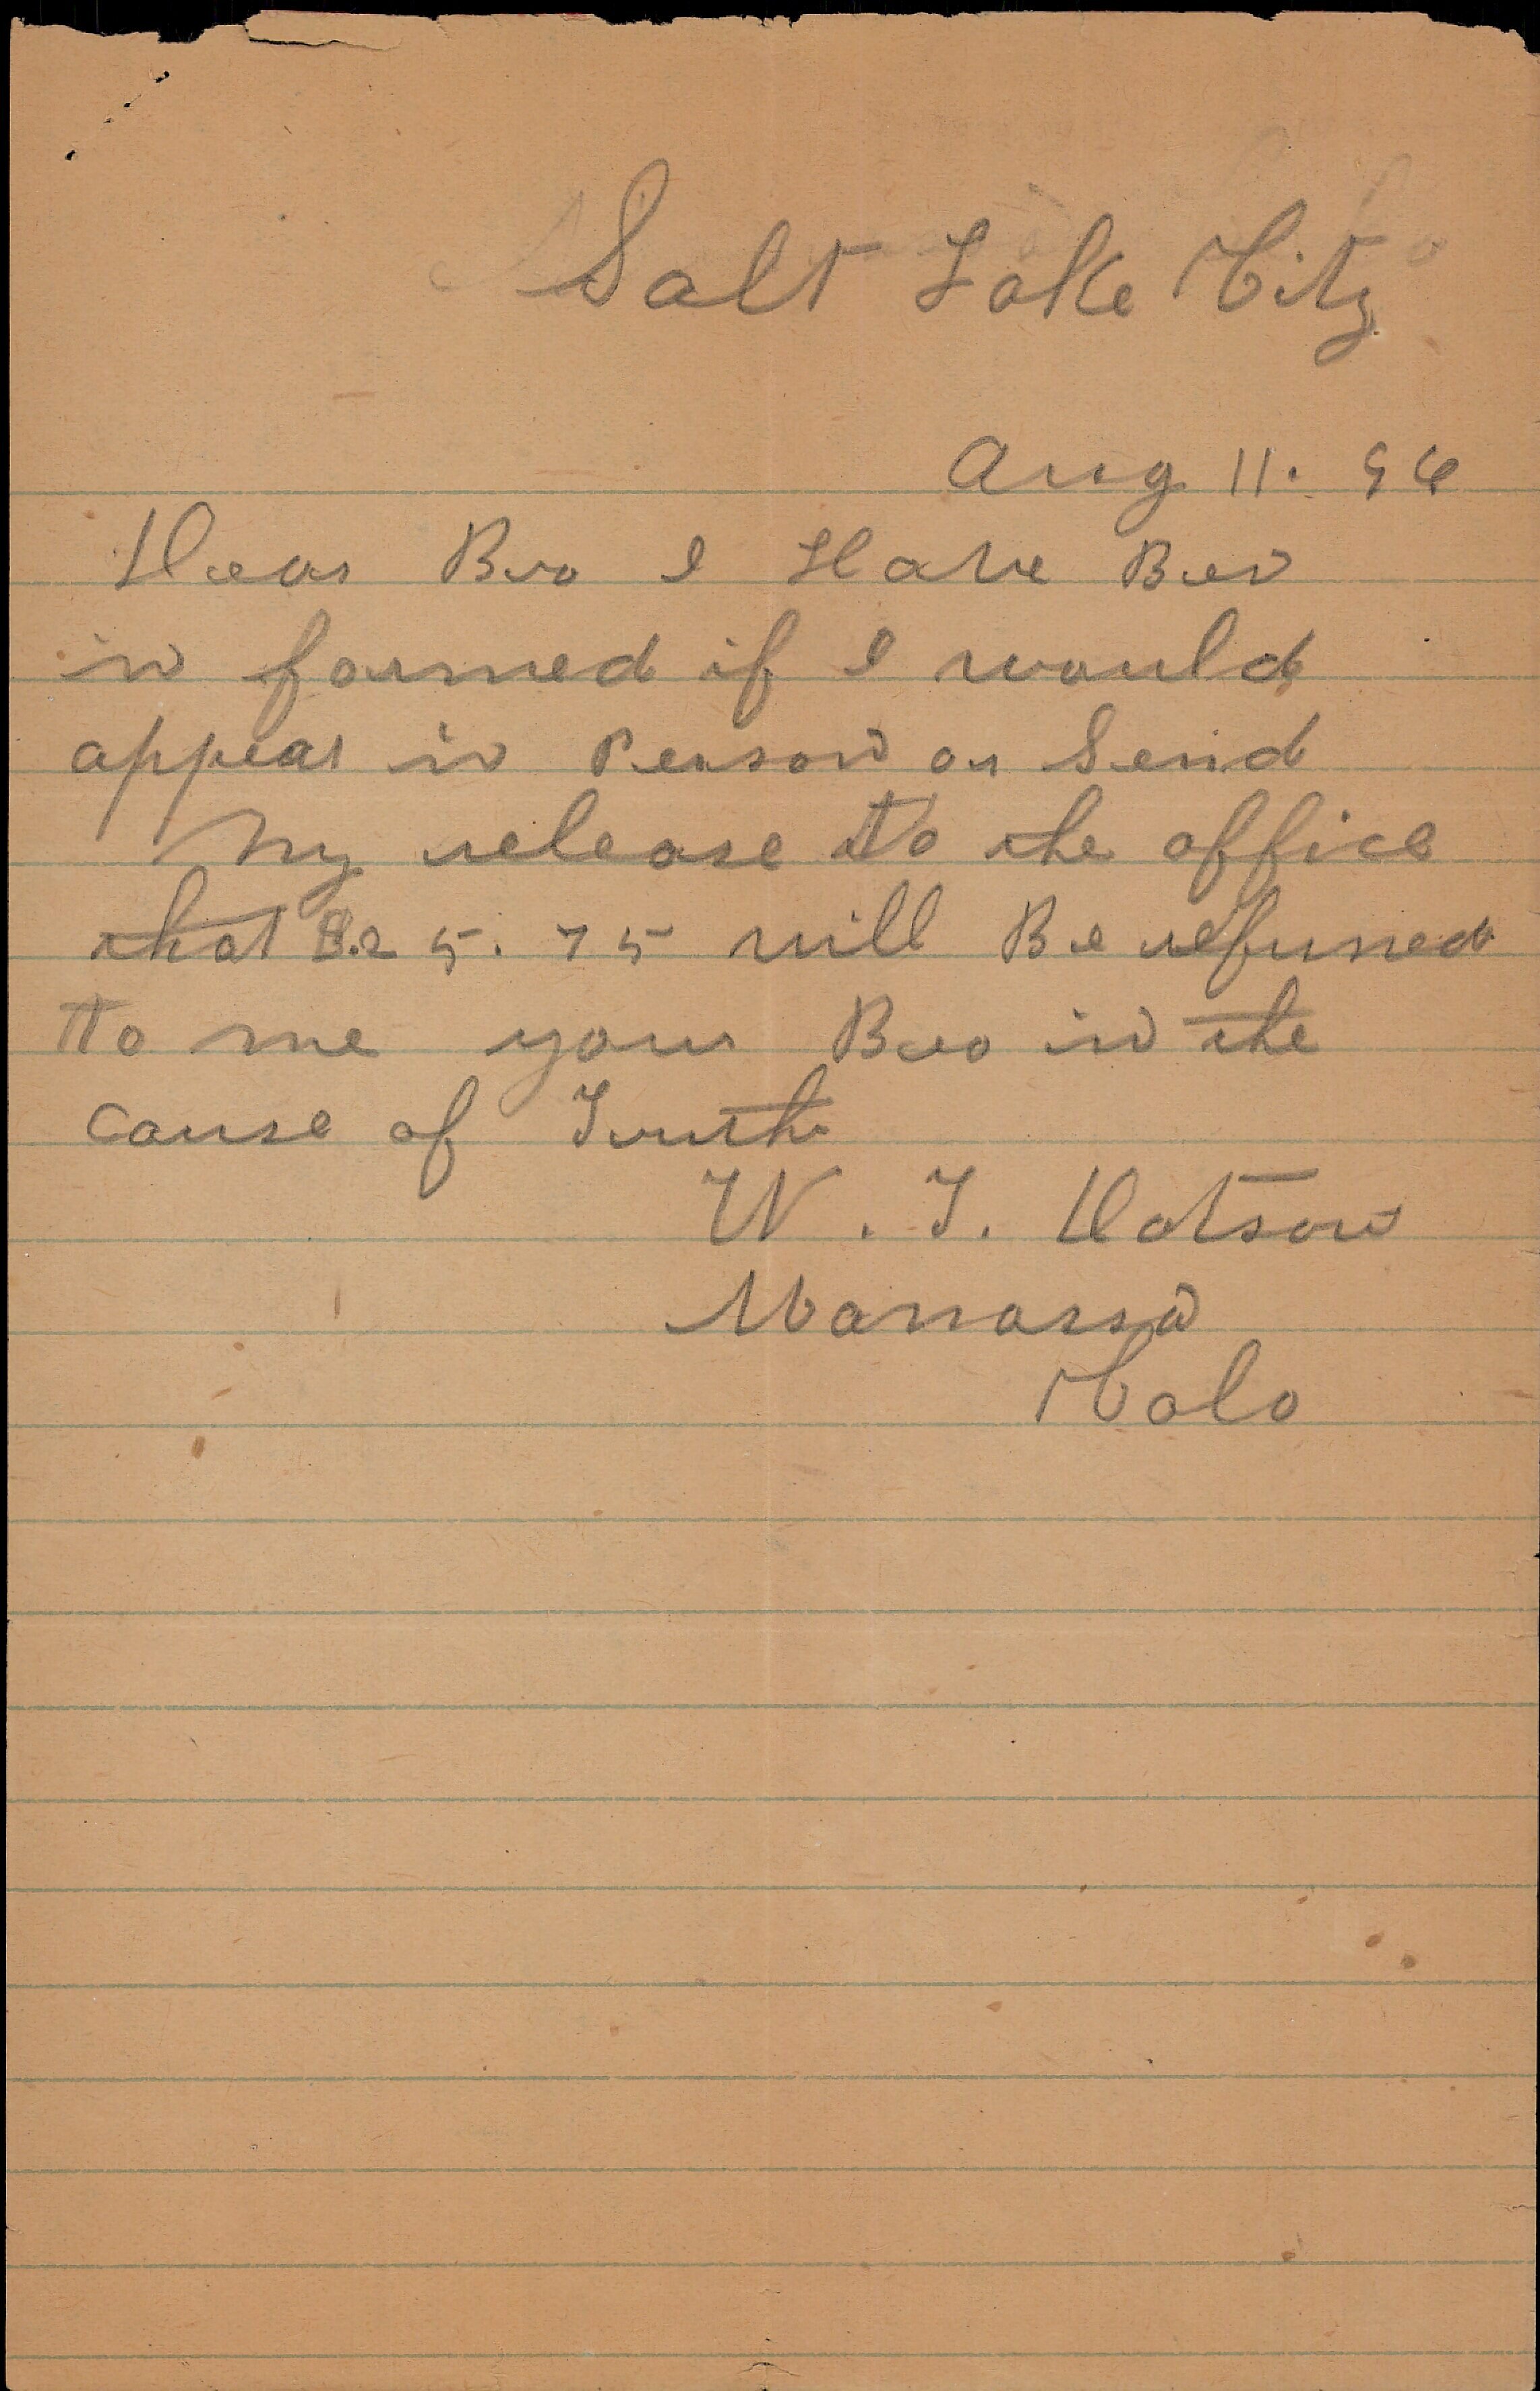 Salt Lake City
Aug 11. 96
Dear Bro I Have Ben
in formed if I would
appear in Person or Send
My release to the office
that 25.75 will Be refuned
to me your Bro in the
cause of Truth
W. T. Dotson
Manassa
Colo